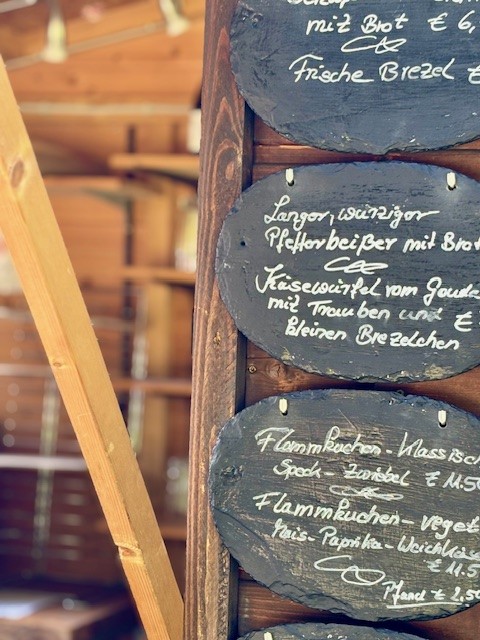 mit Brot € 6,
Frische Brezel €
Langer, würziger
Pfefferbeißer mit Brot
Käsewürfel vom Gouda
mit Trauben und €
kleinen Brezelchen
Flammkuchen - klassisch
Speck - Zwiebel € 11.50
Flammkuchen - veget
Mais - Paprika - Weichkäs
€ 11.5
Pfand € 2,50